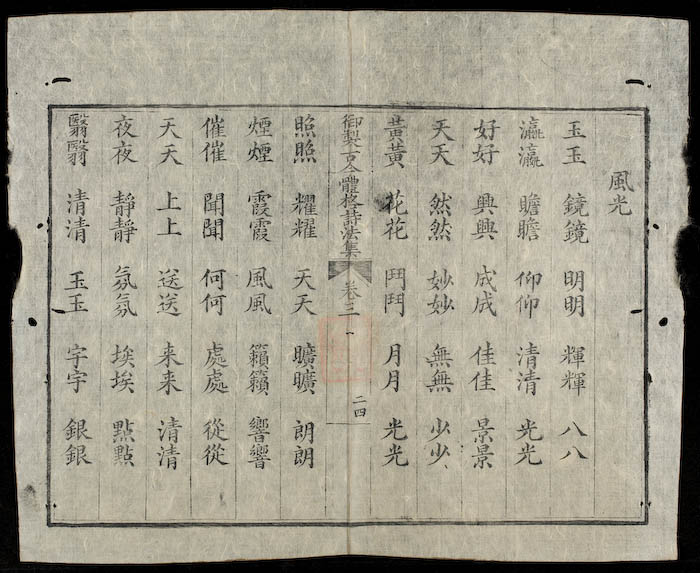 風光
玉玉 鏡鏡 明明 輝輝 八八
瀛瀛 瞻瞻 仰仰 清清 光光
好好 興興 成成 佳佳 景景
天天 然然 妙妙 無無 少少
黃黃 花花 鬥鬥 月月 光光
御製古今體格詩法集 卷三 二四
照照 耀耀 天天 曠曠 朗朗
煙煙 霞霞 風風 籟籟 響響
催催 聞聞 何何 處處 從從
天天 上上 送送 来来 清清
夜夜 靜靜 氛氛 埃埃 點點
翳翳 清清 玉玉 宇宇 銀銀